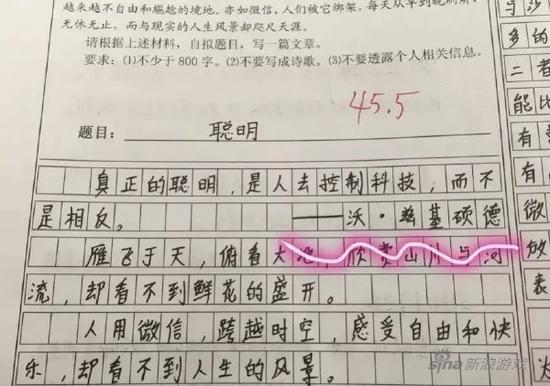 越来越不自由和尴尬的境地。亦如微信，人们被它绑架，每天从早到晚刷屏，
无休无止，而与现实的人生风景却咫尺天涯。
请根据上述材料，自拟题目，写一篇文章。
要求：(1)不少于800字。(2)不要写成诗歌。(3)不要透露个人相关信息。
45.5
题目： 聪明
真正的聪明，是人去控制科技，而不
是相反。 ——沃·兹基硕德
雁飞于天，俯看大地，欣赏山川与河
流，却看不到鲜花的盛开。
人用微信，跨越时空，感受自由和快
乐，却看不到人生的风景。
多的
二者
能比
有
有
微
放
表
sina新浪游戏